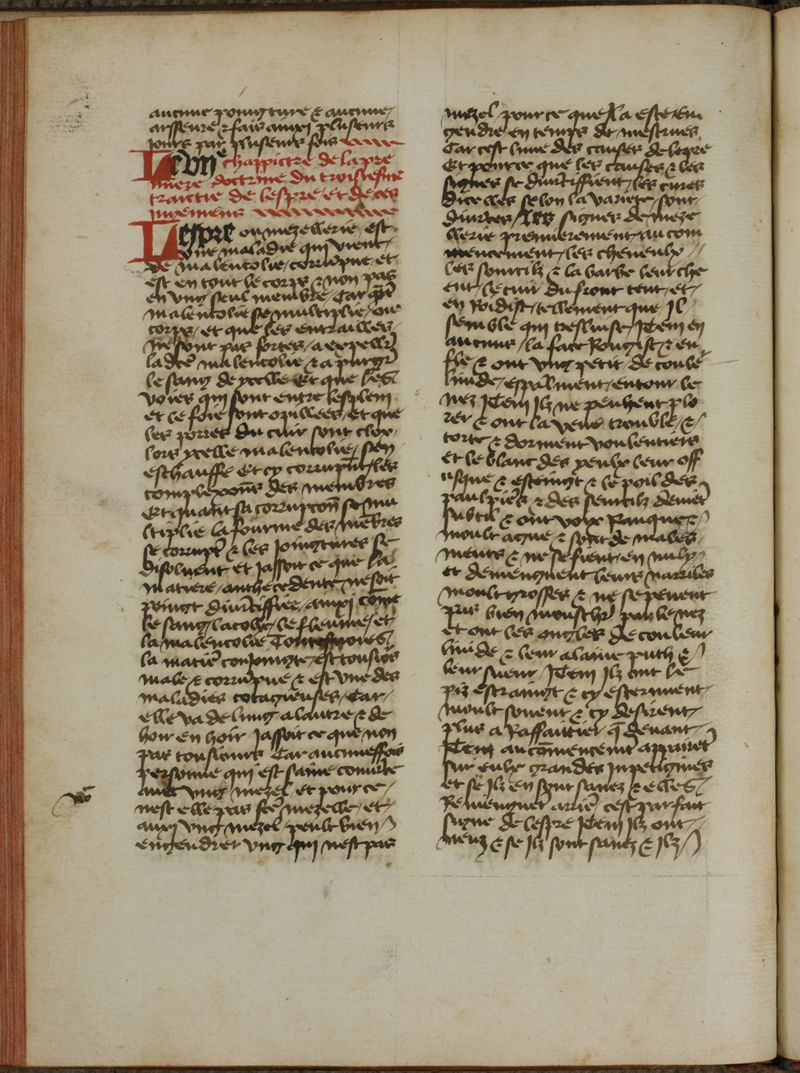 aucune poingture & aucune
arsseure & fais ainxi plusieurs
jours par plusieurs fois
Le vne chappictre de la pre
miere doctrine du troisiesme
traictie de lespre et de ces
jugemens
Lespre ou mezellerie est
vne maladie qui vient
de malencolie corrumpue et
est en tout le corps & non pas
en vng seul membre Car
malencolie se multiplie ou
corps et que les entrailles
ne sont pas fortes a expellir
ladte malencolie & a purgir
le sang de ycelle Et que les
voies qui sont entre lesplein
et le foie sont opillees et que
les porres du cuir sont clox
lors ycelle malencolie sen
eschauffe Et cy corrumpt les
complexions des membres
Et quant sa corrupcon se mu
ltiplie la fourme des membres
se corrupt & les joingtures se
disoluent et jassoit ce que la
matiere anthecedente ne soit
poingt diuersiffiee ainxi come
le sang la colle le fleume et
la malencolie Toutesuoies
la matiere conjoingte est tousiors
male & corrumpue & est vne des
maladies cotagieuses Car
elle va de lung a lautre & de
hoir en hoir jassoit ce que non
pas tousiours Car aucuneffois
personne qui est saine conuerse
auec vng mezel et pour ce
nest elle pas fte mezelle et
auxi vng mezel peult bien
engendrer vng qui nest pas
mezel pour ce que il a este en
gendre en temps de mestrues
Car cest lune des causes de lespre
Et pource que les causes & les
signes se diuersiffient les cures
dicelles selon la variete sont
diuerses Les signes de meze
llerie premierement au com
mencement les cheueulx
les sourcilz & la barbe leur che
ent le cuir du front tent et
en Roidist tellement que Il
semble qui tresluise Item en
aucuns la face Rougist & en
fle & ont vng petit de coule
liuide espalment entour le
nez Item Ilz ne peuhent plo
rer & ont la veue trouble &
torte & dorment voulentiers
et le blanc des yeulx leur off
usque & estraingt & le poil des
paulpieres & des sourcilz deuiet
subtil & ont voyx Rauque &
moult ague & sont de males
meurs & ne se fient en nulz
et demengnent leurs narrilles
moult grosses & ne se peuent
pas bien mouscher par le nez
et ont les ongles de couleur
liuide & leur alaine puth &
leur sueur Item Ilz ont le
piz estraingt & cy esternuent
moult souuent & cy desirent
plus a Raffaictier q deuant
Item au comencement apparet
sur eulx grandes inpetigines
et se Ilz en sont sanez & elles
Reuiengnet ariere cest parfait
signe de lespre Item Ilz ont
& se Ilz sont sanez & Ilz